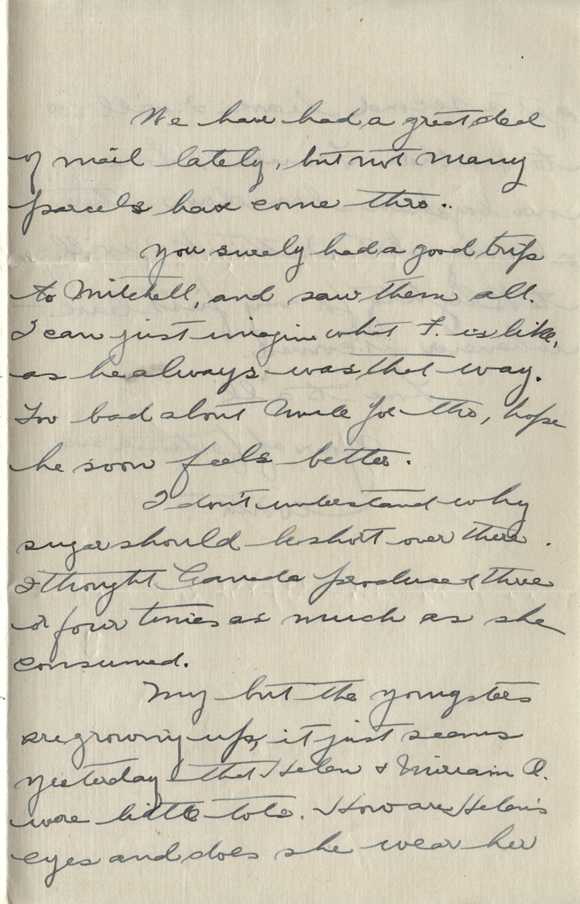 We have had a great deal
of mail lately, but not many
parcels have come thro..
You surely had a good trip
to Mitchell, and saw them all.
I can just imagine what F. is like,
as he always was that way.
Too bad about Uncle Joe tho, hope
he soon feels better.
I don't understand why
sugar should be short over there.
I thought Canada produced three
or four times as much as she
consumed.
My but the youngsters
are growing up, it just seems
yesterday that Helen & Miriam A.
were little tots. How are Helen's
eyes and does she wear her